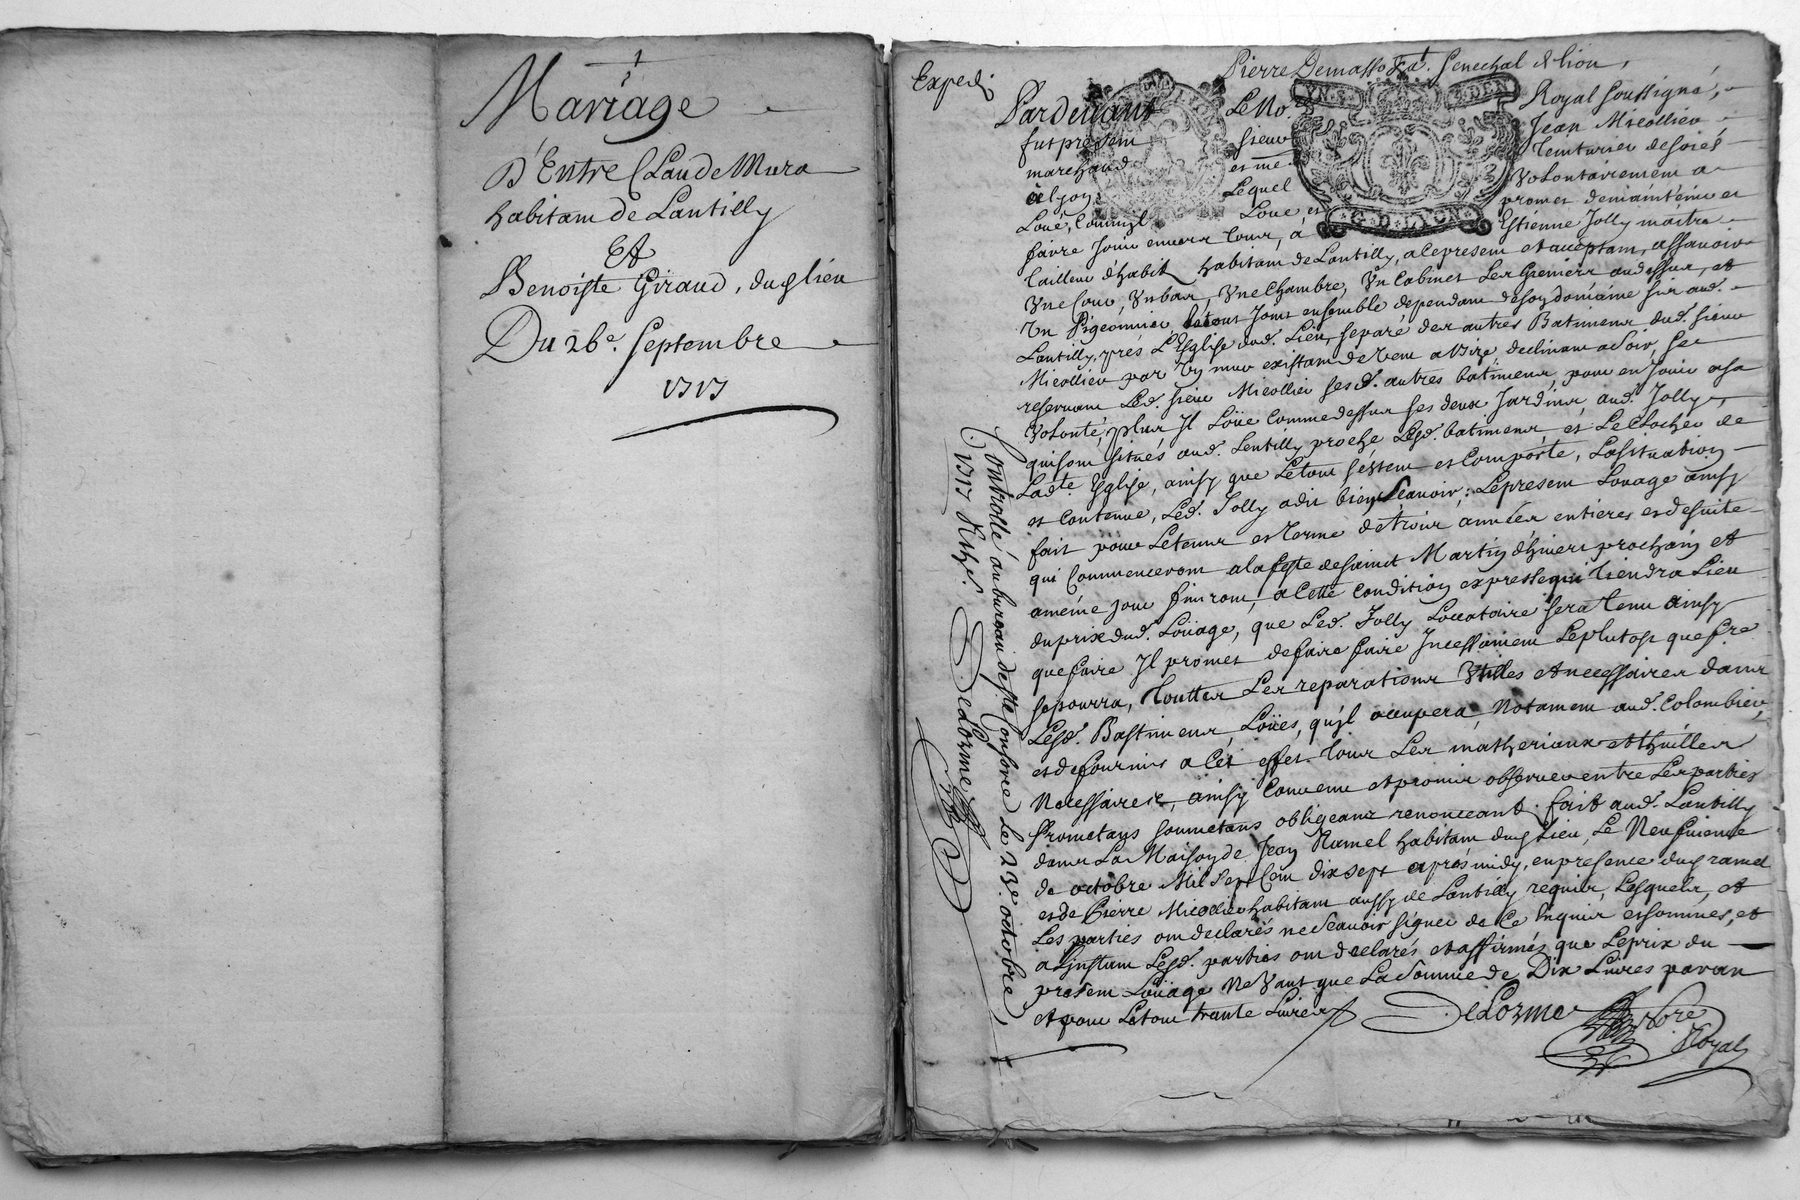 Mariage
D'Entre Claude Mura
habitant de Lantilly
Et
Benoiste Giraud, dud lieu
Du 26e. Septembre
1717
Expedi
Pierre Demasso Sénechal de lion,
Pardevant Le No.re Royal soussigné,
fut présent sieur Jean Micollier
marchand et me. Teinturier de soies
à Lyon, Lequel volontairement a
Loué, Comme il Loue, et promet de maintenir et
faire Jouir envers tous, à Estienne Jolly maitre
tailleur d'habit habitant de Lantilly, a ce present et acceptant, assavoir
Une Cour, Un bas, Une Chambre, Un Cabinet Les Greniers au dessus, et
Un Pigeonnier, le tout Joint ensemble dependant de son domaine sur aud.
Lantilly, prés L'Eglise dud. Lieu, separé des autres Batiments dud. sieur
Micollier par un mur existant de vent a bize, declinant a soir, se
reservant Led. sieur Micollier sesd. autres batiments, pour en Jouir a sa
volonté, plus Il Loüe comme dessus ses deux Jardins, aud. Jolly,
qui sont situés aud. Lentilly proche Lesd. batiments et Le Clocher de
Ladte. Eglise, ainsy que Letout s'éstent et Comporte, La situation
et Contenue, Led. Jolly a dit bien sçavoir; Le present Louage ainsy
fait pour Le temps et terme de trois années entieres et de suite
qui Commenceront a la feste de saint Martin d'hivert prochain et
a méme jour finiront, a Cette Condition expresse qui tiendra Lieu
du prix dud. Loüage, que Led. Jolly Locataire sera tenu ainsy
que faire Il promet de faire faire Incessament Le plutost que f.re
se pourra, touttes Les reparations Utilles et necessaires dans
Lesd. Bastiments Loües, qu'il occupera, Notament aud. Colombier,
et de fournir a Cét effet tous Les matheriaux et thuilles
Necessaires, ainsy Convenu et promis observer entre Les parties
Promettans soumetans obligeans renonceant. fait aud. Lantilly
dans La Maison de Jean Ramel habitant dud Lieu, Le Neufvieme
de octobre Mil Sept Cent dix sept aprés midy, en presence dud ramel
et de Pierre Micollier habitant aussy de Lantilly requis, Lesquels, et
Les parties ont declarés ne sçavoir signer de Ce Enquis et sommes, et
a L'instant Lesd. parties ont declarés et affirmés que Le prix du
present Loüage Ne Vaut que La somme de Dix Livres par an
et pour Letout trante Livres
DeLorme
No.re Royal
Controllé au bureau de Ste Consorce Le 23e. octobre
1717
DeLorme
G. D. LYON